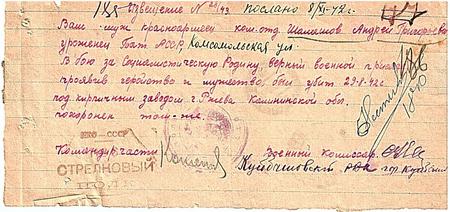 Извещение № 23/43 послано 8/XI-42 г.
Ваш муж красноармеец ком. отд. Шалашов Андрей Григорьевич
уроженец Бат. АССР, Комсомольская ул
В бою за Социалистическую Родину, верный военной присяге
проявив геройство и мужество, был убит 29-8-42 г
под кирпичным заводом г. Ржева Калининской обл.
похоронен там-же.
НКО-СССР
СТРЕЛКОВЫЙ
ПОЛК
Командир части
Военный комиссар
Куйбышевский РВК гор.